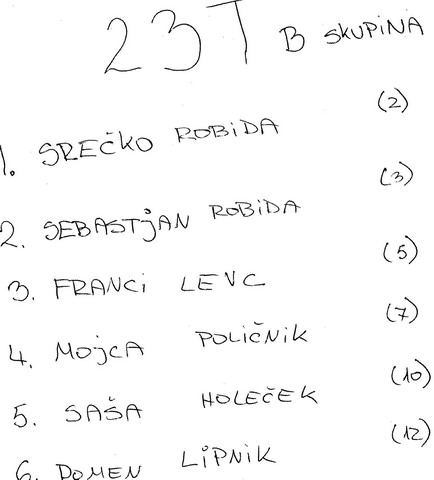 23T B SKUPINA
1. SREČKO ROBIDA (2)
2. SEBASTJAN ROBIDA (3)
3. FRANCI LEVC (5)
4. MOJCA POLIČNIK (7)
5. SAŠA HOLEČEK (10)
6. DOMEN LIPNIK (12)